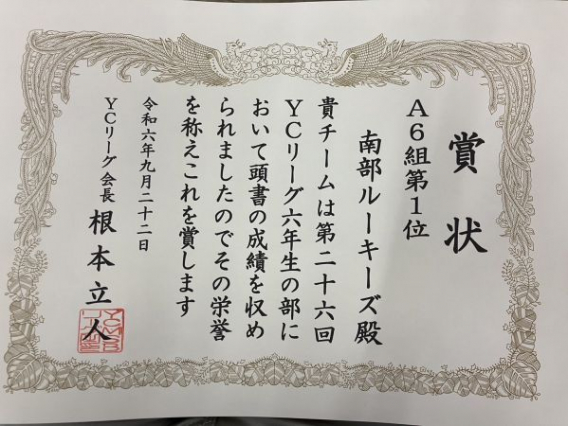 賞状
A6組第1位
南部ルーキーズ殿
貴チームは第二十六回
YCリーグ六年生の部に
おいて頭書の成績を収め
られましたのでその栄誉
を称えこれを賞します
令和六年九月二十二日
YCリーグ会長 根本立人